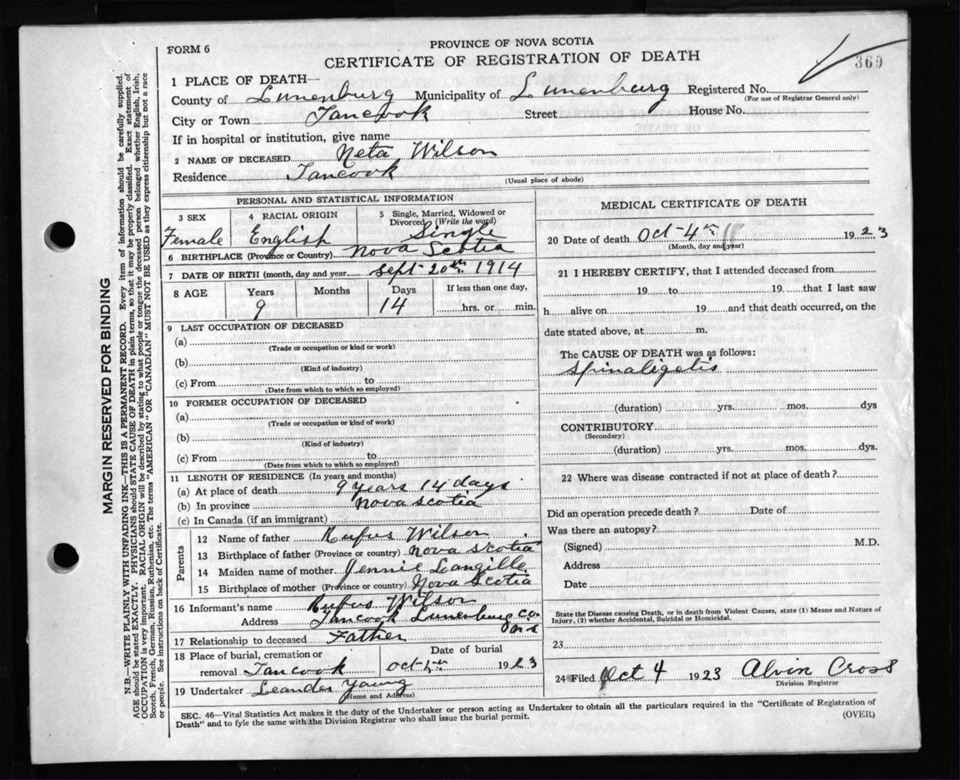 FORM 6
PROVINCE OF NOVA SCOTIA
CERTIFICATE OF REGISTRATION OF DEATH
369
1 PLACE OF DEATH—
County of Lunenburg Municipality of Lunenburg Registered No.
(For use of Registrar General only)
City or Town Tancook Street House No.
If in hospital or institution, give name
2 NAME OF DECEASED Neta Wilson
Residence Tancook
(Usual place of abode)
PERSONAL AND STATISTICAL INFORMATION
3 SEX
Female
4 RACIAL ORIGIN
English
5 Single, Married, Widowed or
Divorced (Write the word)
Single
6 BIRTHPLACE (Province or Country) Nova Scotia
7 DATE OF BIRTH (month, day and year) Sept 20th 1914
8 AGE Years Months Days If less than one day.
9 14 hrs. or min.
9 LAST OCCUPATION OF DECEASED
(a)
(Trade or occupation or kind or work)
(b)
(Kind of industry)
(c) From to
(Date from which to which so employed)
10 FORMER OCCUPATION OF DECEASED
(a)
(Trade or occupation or kind or work)
(b)
(Kind of industry)
(c) From to
(Date from which to which so employed)
11 LENGTH OF RESIDENCE (In years and months)
(a) At place of death 9 years 14 days
(b) In province Nova Scotia
(c) In Canada (if an immigrant)
Parents
12 Name of father Rufus Wilson
13 Birthplace of father (Province or country) Nova Scotia
14 Maiden name of mother Jennie Langille
15 Birthplace of mother (Province or country) Nova Scotia
16 Informant's name Rufus Wilson
Address Tancook Lunenburg Co.
N S
17 Relationship to deceased Father
18 Place of burial, cremation or removal Tancook
Date of burial
Oct 1923
19 Undertaker Leander Young
(Name and Address)
MEDICAL CERTIFICATE OF DEATH
20 Date of death Oct-4th 1923
(Month, day and year)
21 I HEREBY CERTIFY, that I attended deceased from
19 to 19 that I last saw
h alive on 19 and that death occurred, on
date stated above, at m.
The CAUSE OF DEATH was as follows:
(duration) yrs. mos. dys
CONTRIBUTORY
(Secondary)
(duration) yrs. mos. dys.
22 Where was disease contracted if not at place of death?
Did an operation precede death? Date of
Was there an autopsy?
(Signed) M.D.
Address
Date
State the Disease causing Death, or in death from Violent Causes, state (1) Means and Nature of
Injury, (2) whether Accidental, Suicidal or Homicidal.
23
24 Filed Oct 4 1923 Alvin Cross
Division Registrar
SEC. 46—Vital Statistics Act makes it the duty of the Undertaker or person acting as Undertaker to obtain all the particulars required in the "Certificate of Registration of
Death" and to fyle the same with the Division Registrar who shall issue the burial permit.
(OVER)
MARGIN RESERVED FOR BINDING
N.B.—WRITE PLAINLY WITH UNFADING INK—THIS IS A PERMANENT RECORD. Every item of information should be carefully supplied.
AGE should be stated EXACTLY. PHYSICIANS should STATE CAUSE OF DEATH in plain terms, so that it may be properly classified. Exact statement of
OCCUPATION is very important. RACIAL ORIGIN will be described by stating to what people or tongue the deceased person belonged whether English, Irish,
Scotch, French, German, Russian, Ruthenian, etc. The terms "AMERICAN" OR "CANADIAN" MUST NOT BE USED as they express citizenship but not a race
or people. See instructions on back of Certificate.